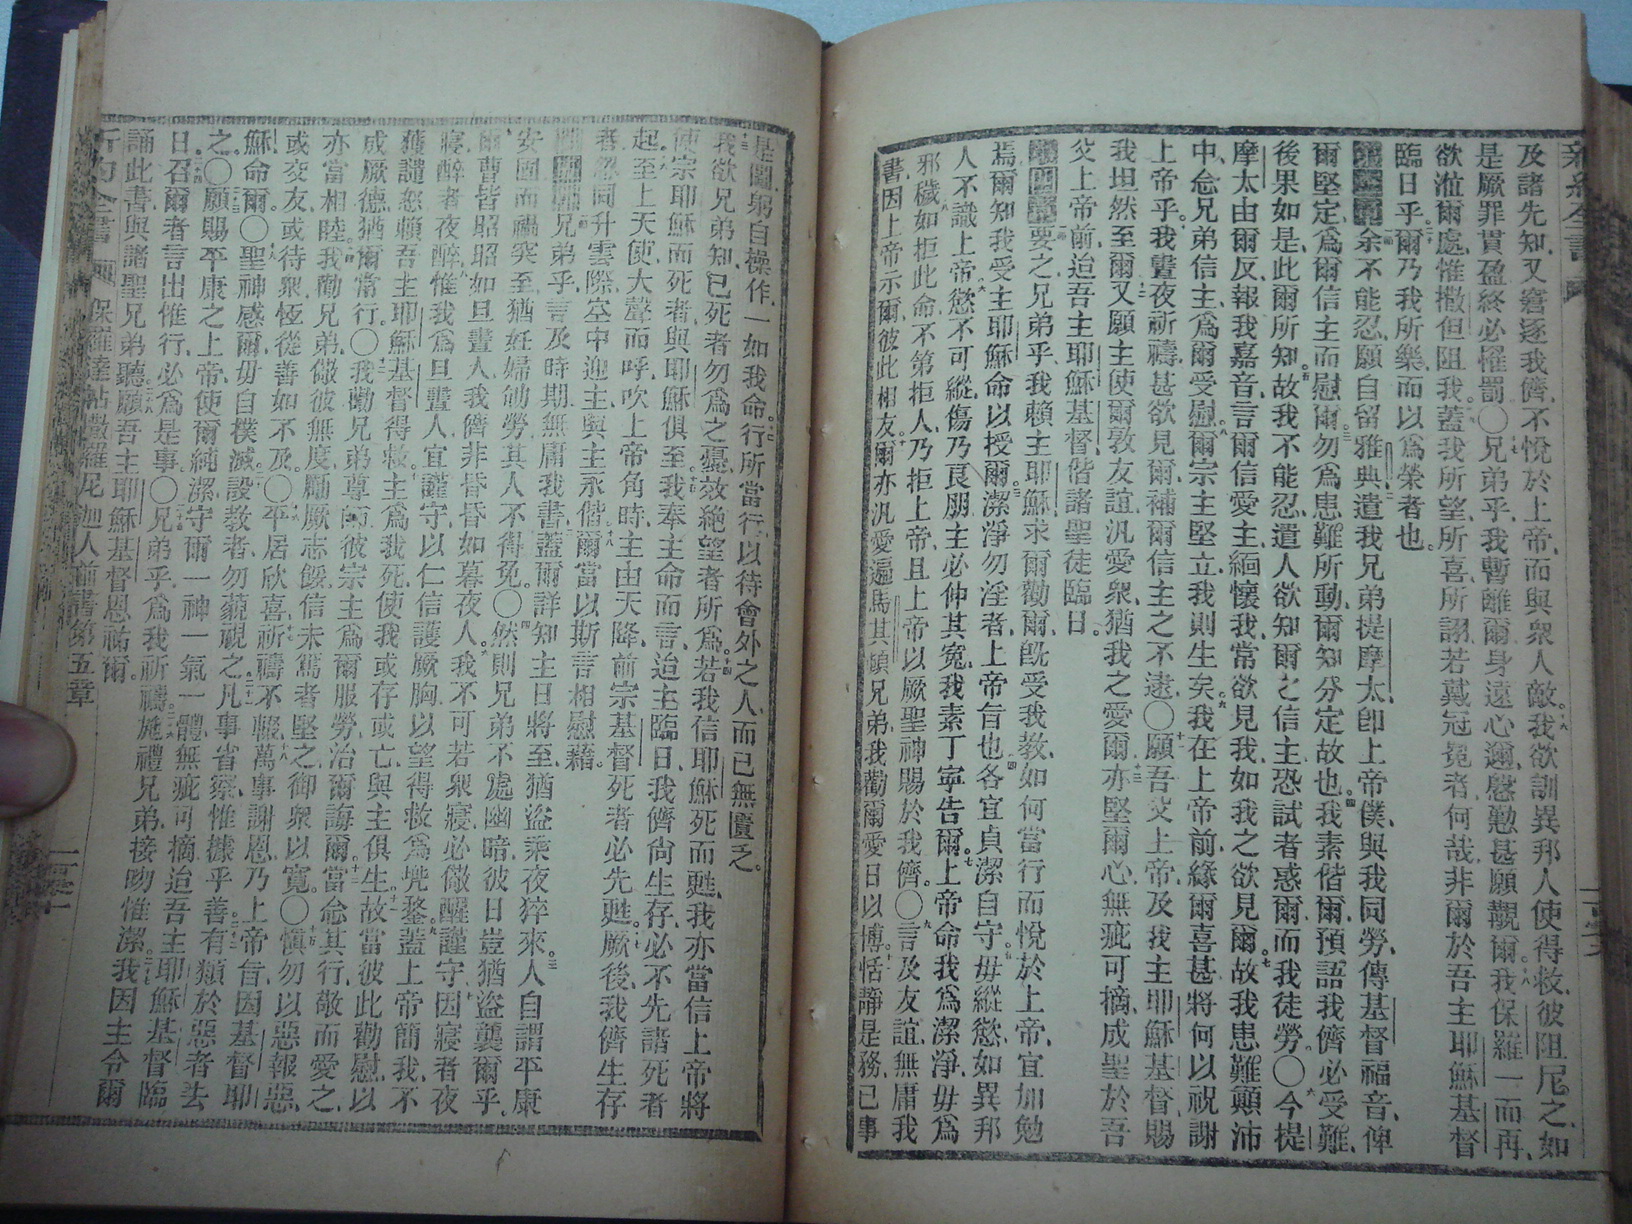 及諸先知、又窘逐我儕、不悅於上帝、而與衆人敵。我欲訓異邦人使得救、彼阻尼之、如
是厥罪貫盈、終必懼罰。○兄弟乎、我暫離爾、身遠心邇、慇懃甚願覿爾。我保羅一而再、
欲涖爾處、惟撒但阻我。蓋我所望、所喜、所詡、若戴冠冕者何哉、非爾於吾主耶穌基督
臨日乎。爾乃我所樂、而以爲榮者也。
余不能忍、願自留雅典、遣我兄弟提摩太、卽上帝僕、與我同勞、傳基督福音、俾
爾堅定、爲爾信主而慰爾、勿爲患難所動、爾知分定故也。我素偕爾、預語我儕必受難、
後果如是、此爾所知。故我不能忍、遣人欲知爾之信主、恐試者惑爾、而我徒勞。○今提
摩太由爾反、報我嘉音、言爾信愛主、緬懷我、常欲見我、如我之欲見爾。故我患難顚沛
中、念兄弟信主、爲爾受慰。爾宗主堅立、我則生矣。我在上帝前、緣爾喜甚、將何以祝謝
上帝乎。我晝夜祈禱、甚欲見爾、補爾信主之不逮。○願吾父上帝、及我主耶穌基督、賜
我坦然至爾。又願主使爾敦友誼、汎愛衆、猶我之愛爾、亦堅爾心、無疵可摘、成聖於吾
父上帝前、迨吾主耶穌基督、偕諸聖徒臨日。
要之兄弟乎、我賴主耶穌求爾勸爾、旣受我教、如何當行、而悅於上帝、宜加勉
焉。爾知我受主耶穌命以授爾。潔淨勿淫者、上帝旨也。各宜貞潔自守。毋縱慾、如異邦
人不識上帝。慾不可縱、傷乃良朋、主必仲其寃、我素丁寧告爾。上帝命我爲潔淨、毋爲
邪穢。如拒此命、不第拒人、乃拒上帝、且上帝以厥聖神賜於我儕。○言及友誼、無庸我
書、因上帝示爾、彼此相友。爾亦汎愛遍馬其頓兄弟、我勸爾愛日以博。恬靜是務、己事
是圖、躬自操作、一如我命。行所當行、以待會外之人、而已無匱乏。
我欲兄弟知、已死者勿爲之憂、效絶望者所爲。若我信耶穌死而甦、我亦當信上帝將
使宗耶穌而死者、與耶穌俱至。我奉主命而言、迨主臨日、我儕尙生存、必不先諸死者
起。至上天使大聲而呼、吹上帝角時、主由天降、前宗基督死者必先甦。厥後我儕生存
者、忽同升雲際、空中迎主、與主永偕。爾當以斯言相慰藉。
兄弟乎、言及時期、無庸我書。蓋爾詳知主日將至、猶盜乘夜猝來。人自謂平康
安固、而禍突至、猶妊婦劬勞、其人不得免。○然則兄弟不處幽暗、彼日豈猶盜襲爾乎、
爾曹皆昭昭如旦晝人、我儕非昏昏如暮夜人。我不可若衆寢、必儆醒謹守、因寢者夜
寢、醉者夜醉、惟我爲旦晝人、宜謹守、以仁信護厥胸、以望得救爲兜鍪。蓋上帝簡我、不
獲譴怒、賴吾主耶穌基督得救。主爲我死、使我或存或亡、與主俱生、故當彼此勸慰、以
成厥德、猶爾常行。○我勸兄弟、尊師、彼宗主爲爾服勞、治爾誨爾。當念其行、敬而愛之、
亦當相睦。我勸兄弟、儆彼無度、勵厥志餒、信未篤者堅之、御衆以寬。○愼勿以惡報惡、
或交友、或待衆、恆從善如不及。○平居欣喜、祈禱不輟、萬事謝恩、乃上帝旨、因基督耶
穌命爾。○聖神感爾、毋自樸滅。設教者、勿藐視之。凡事省察、惟據乎善。有類於惡者去
之。○願賜平康之上帝、使爾純潔、守爾一神一氣一體、無疵可摘、迨吾主耶穌基督臨
日。召爾者言出惟行、必爲是事。○兄弟乎、爲我祈禱。施禮兄弟、接吻惟潔。我因主令爾
誦此書與諸聖兄弟聽。願吾主耶穌基督恩祐爾。
新約全書 保羅達帖撒羅尼迦人前書第五章